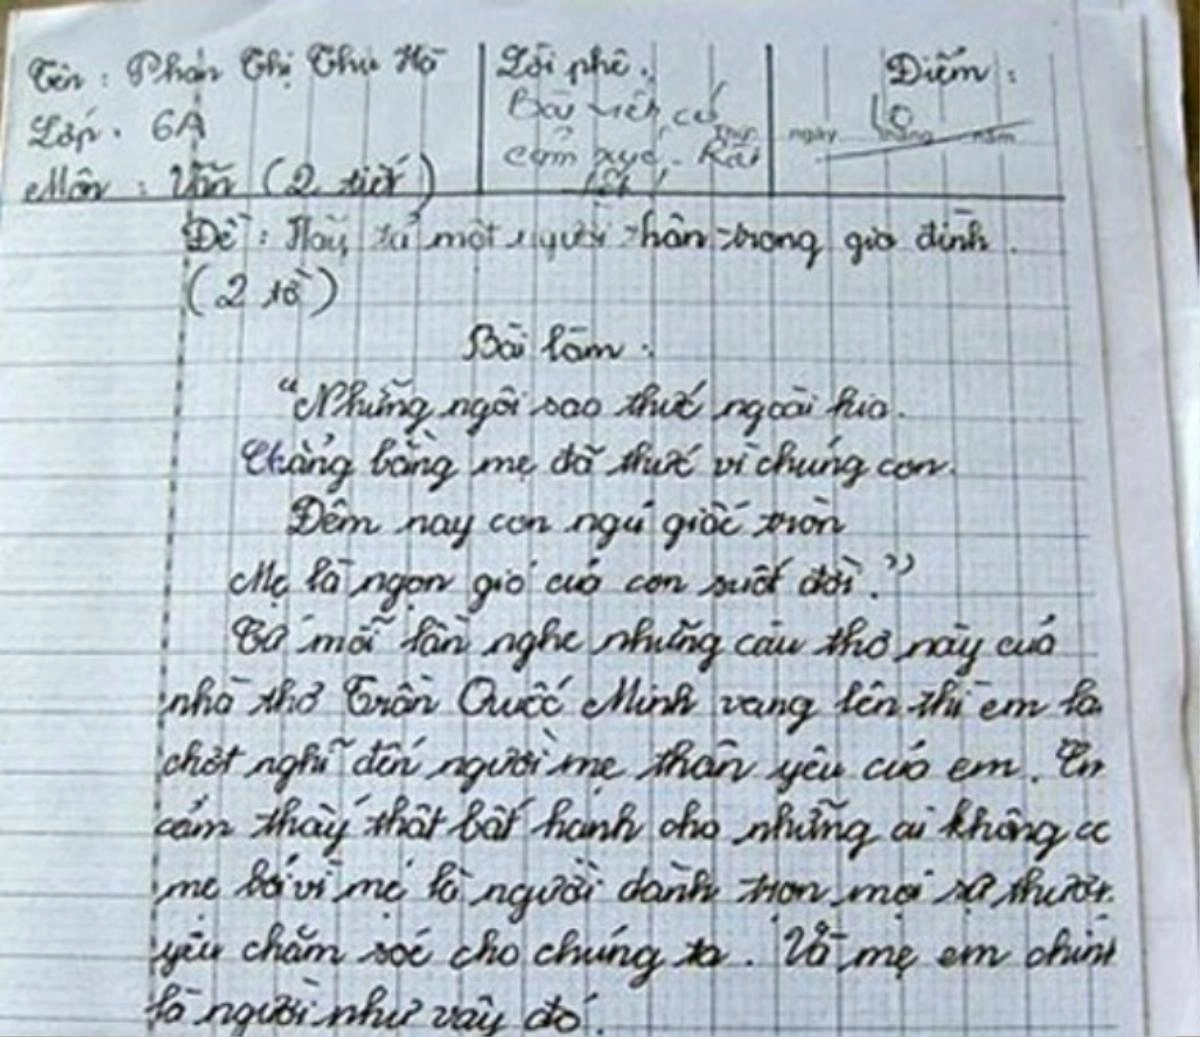 Tên : Phan Thị Thu Hà
Lớp. 6A
Môn : Văn (2 tiết)
Lời phê.
Bài viết có
cảm xúc. Rất
tốt!
Điểm :
10
Thứ ngày tháng năm
Đề : Hãy tả một người thân trong gia đình.
(2 tờ)
Bài làm :
"Những ngôi sao thức ngoài kia.
Chẳng bằng mẹ đã thức vì chúng con.
Đêm nay con ngủ giấc tròn
Mẹ là ngọn gió của con suốt đời."
Cứ mỗi lần nghe những câu thơ này của
nhà thơ Trần Quốc Minh vang lên thì em lạ
chợt nghĩ đến người mẹ thân yêu của em. Em
cảm thấy thật bất hạnh cho những ai không có
mẹ bởi vì mẹ là người dành trọn mọi sự thươn
yêu chăm sóc cho chúng ta. Và mẹ em chính
là người như vậy đó.